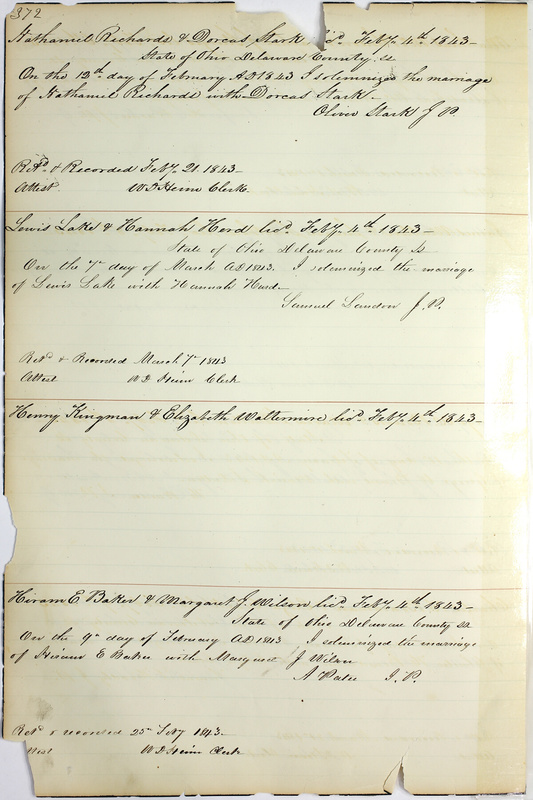 372
Nathaniel Richards & Dorcas Stark licd. Feby. 4th. 1843-
State of Ohio Delaware County ss
On the 12th day of February AD 1843 I solemnized the marriage
of Nathaniel Richards with Dorcas Stark-
Oliver Stark J P.
Retd. & Recorded Feby. 21. 1843-
Attest. W D Heim Clerk.
Lewis Lake & Hannah Hord licd. Feby. 4th. 1843-
State of Ohio Delaware County ss
On the 7th day of March AD 1843. I solemnized the marriage
of Lewis Lake with Hannah Hard-
Samuel Landon J. P.
Retd & Recorded March 7th 1843
Attest W D Heim Clerk
Henry Kingman & Elizabeth Waltermire licd. Feby. 4th. 1843-
Hiram E Baker & Margaret J. Wilson licd. Feby. 4th. 1843-
State of Ohio Delaware County ss
On the 9th day of February AD 1843 I solemnized the marriage
of Hiram E Baker with Margaret J Wilson
A J. P.
Retd & recorded 25th Feby 1843-
ttest W D Heim Clerk